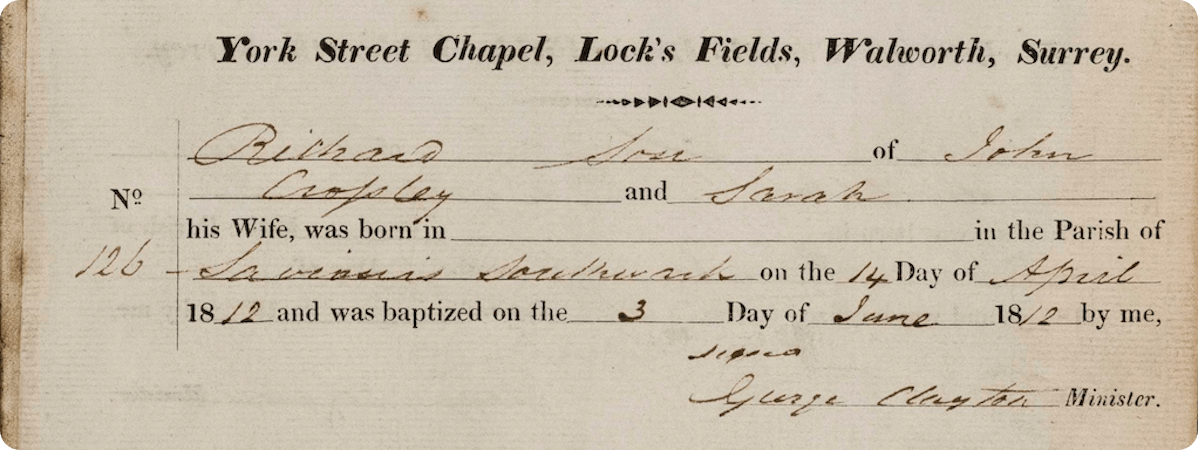 York Street Chapel, Lock's Fields, Walworth, Surrey.
Richard Son of John
Cropley and Sarah
No
his Wife, was born in in the Parish of
126 Saviours Southwark on the 14 Day of April
1812 and was baptized on the 3 Day of June 1812 by me,
signed
George Clayton Minister.